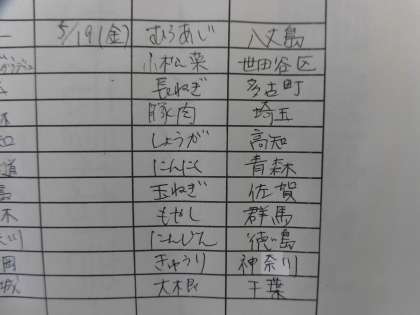 5/19(金) むろあじ 八丈島
小松菜 世田谷区
長ねぎ 多古町
豚肉 埼玉
しょうが 高知
にんにく 青森
玉ねぎ 佐賀
もやし 群馬
にんじん 徳島
きゅうり 神奈川
大根 千葉